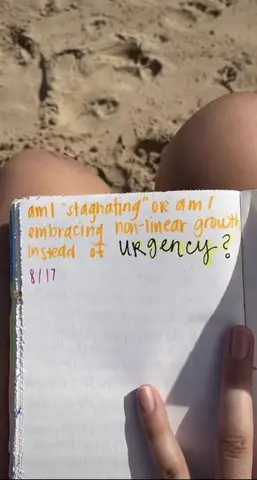 am I "stagnating" OR am I
embracing non-linear growth
instead of URGENCY?
8/17